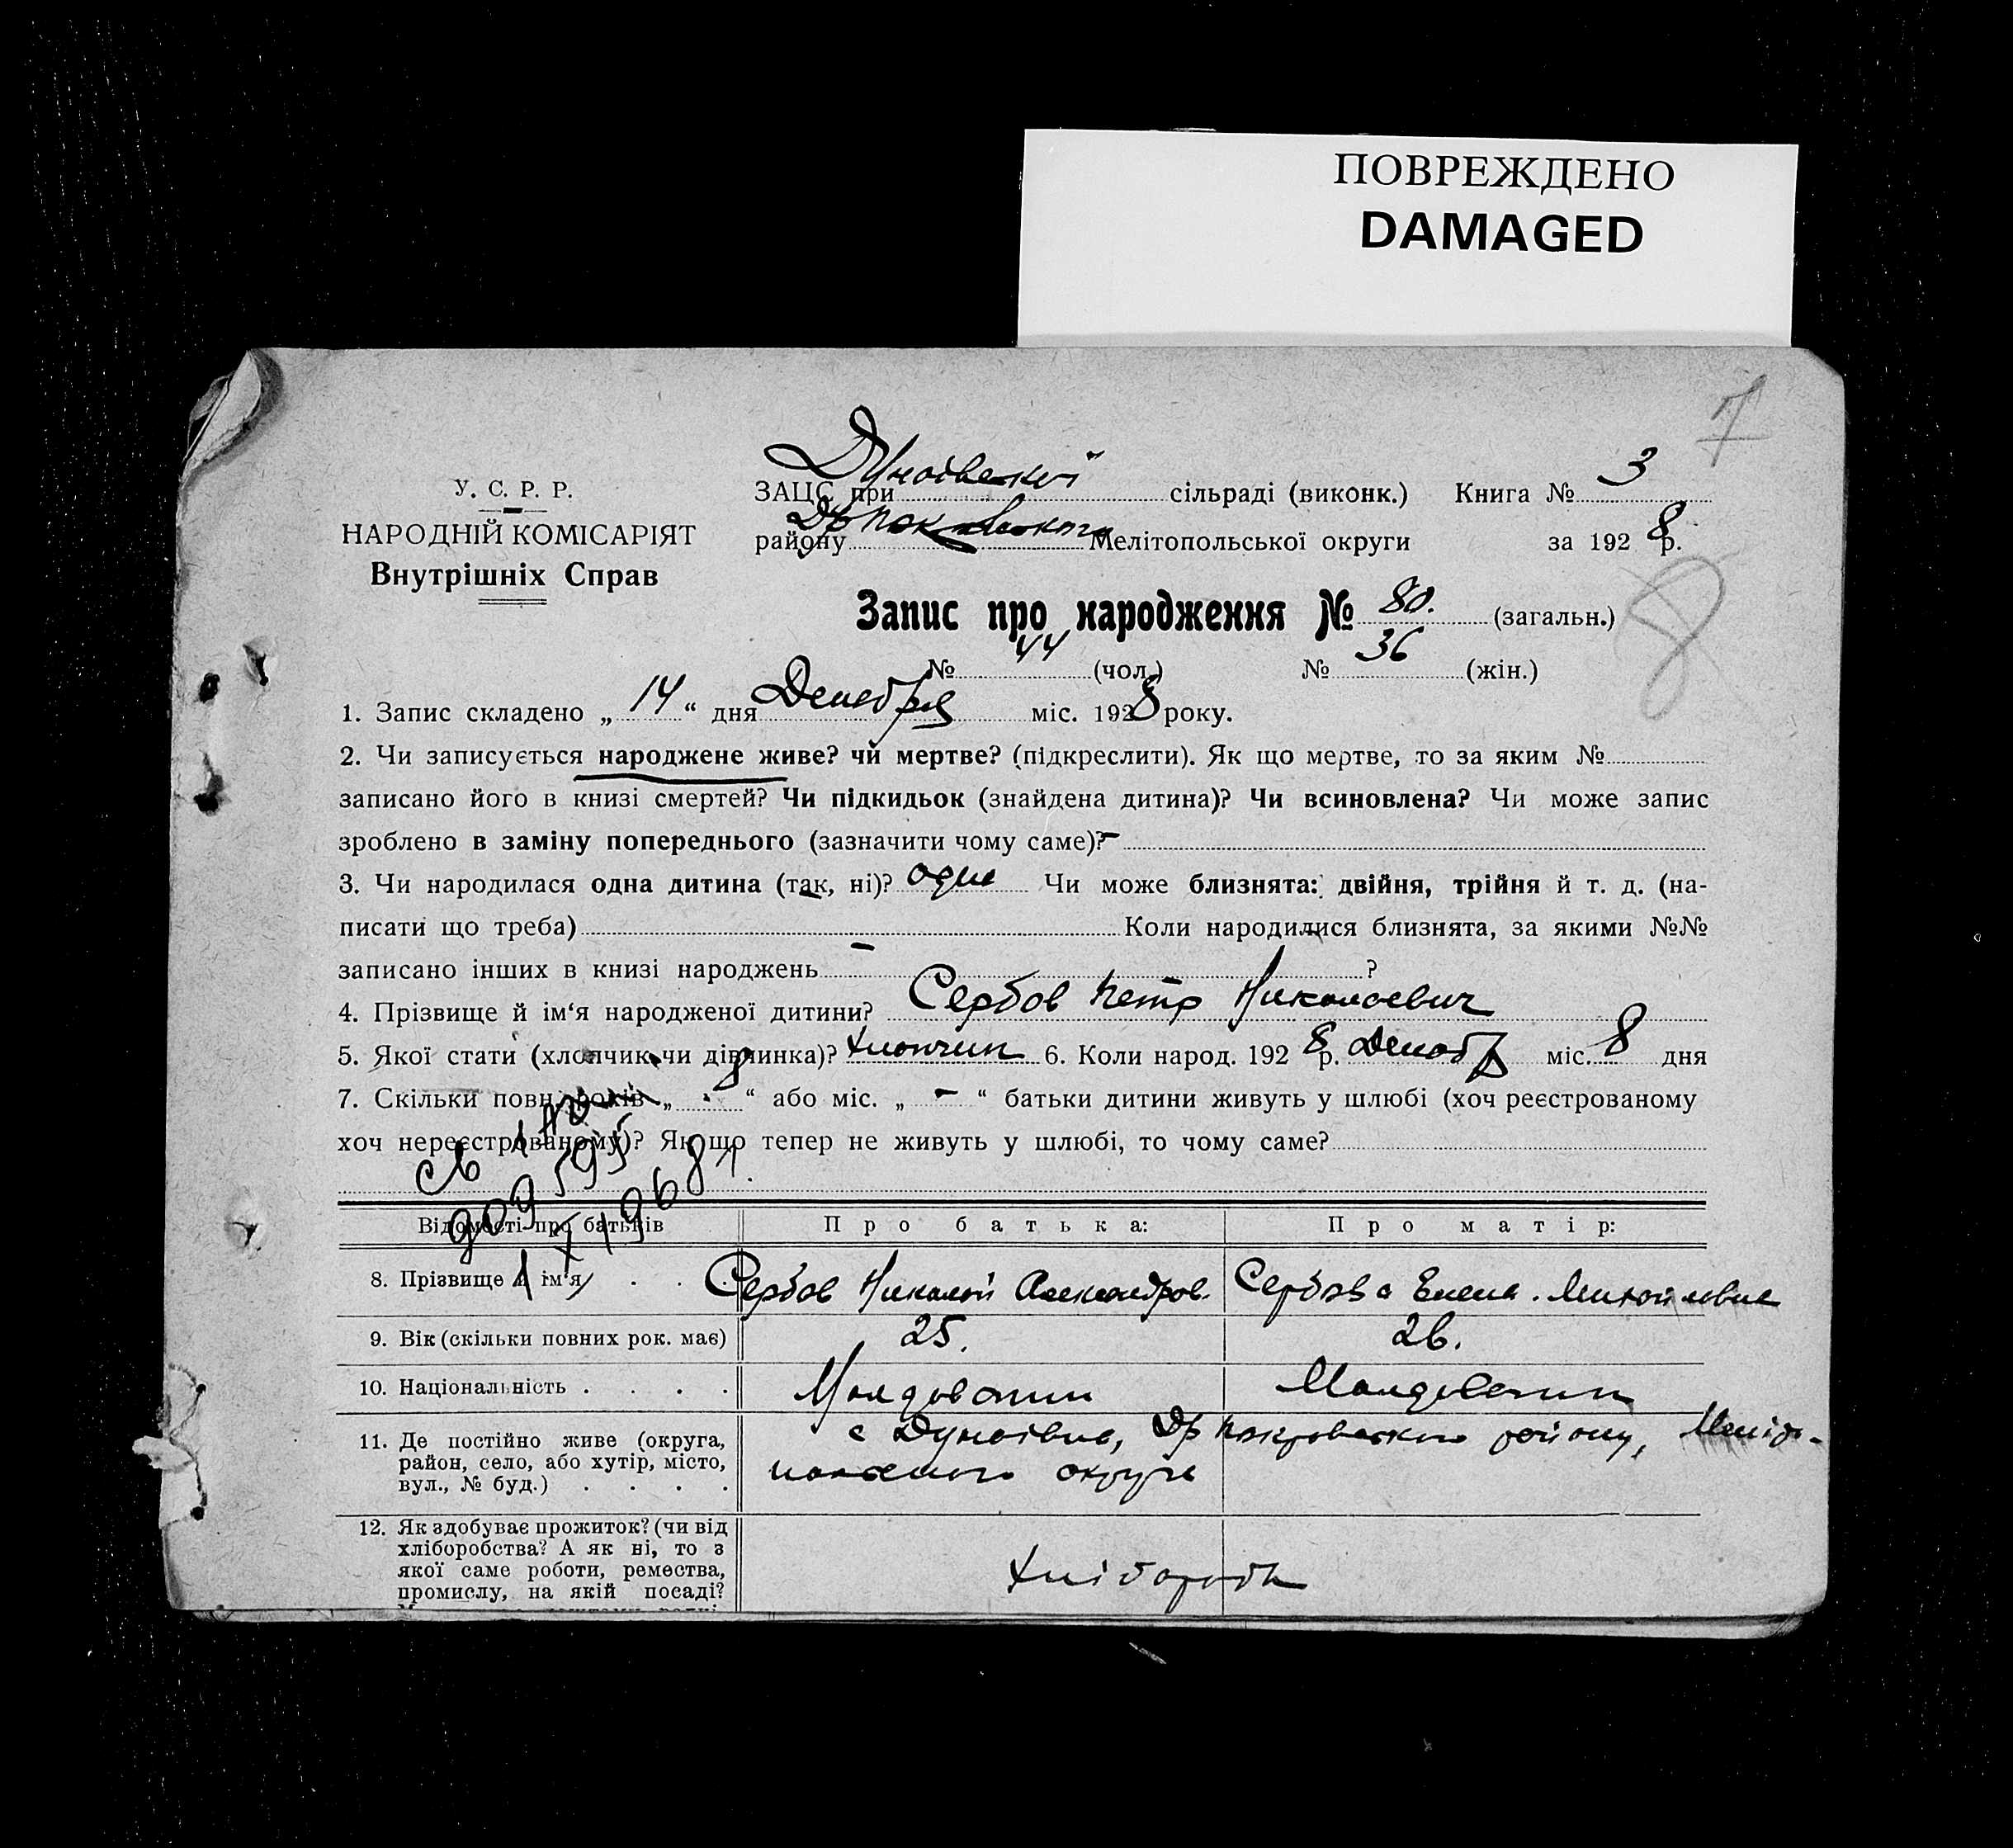 ПОВРЕЖДЕНО
DAMAGED
7
У. С. Р. Р.
НАРОДНІЙ КОМІСАРІЯТ
Внутрішніх Справ
ЗАЦС при Дунаївській сільраді (виконк.) Книга № 3
району Мелітопольської округи за 1928 р.
8
Запис про народження № 80. (загальн.)
№ 44 (чол.) № 36 (жін.)
1. Запис складено „ 14 “ дня Декабря міс. 1928 року.
2. Чи записується народжене живе? чи мертве? (підкреслити). Як що мертве, то за яким №
записано його в книзі смертей? Чи підкидьок (знайдена дитина)? Чи всиновлена? Чи може запис
зроблено в заміну попереднього (зазначити чому саме)? –
3. Чи народилася одна дитина (так, ні)? одна Чи може близнята: двійня, трійня й т. д. (на-
писати що треба) Коли народилися близнята, за якими №№
записано інших в книзі народжень – ?
4. Прізвище й ім‘я народженої дитини? Сербов Петр Николаевич
5. Якої стати (хлопчик чи дівчинка)? хлопчик 6. Коли народ. 1928 р. Декабр міс. 8 дня
7. Скільки повн. років „ “ або міс. „ – “ батьки дитини живуть у шлюбі (хоч реєстрованому
хоч нереєстрованому)? Як що тепер не живуть у шлюбі, то чому саме?
Відомості про батьків Про батька: Про матір:
8. Прізвище й ім‘я Сербов Николай Александров. Сербова Елена Михайловна
9. Вік (скільки повних рок. має) 25. 26.
10. Національність Молдованин Молдованин
11. Де постійно живе (округа,
район, село, або хутір, місто,
вул., № буд.)
с Дунаївка, Др Покровського району, Меліто-
польского округа
12. Як здобуває прожиток? (чи від
хліборобства? А як ні, то з
якої саме роботи, ремества,
промислу, на якій посаді?
хлібороби